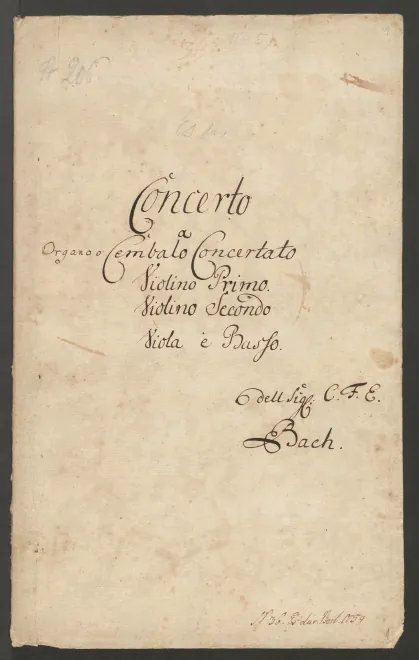 206
Es dur
Concerto
Organo o Cembalo Concertato
Violino Primo.
Violino Secondo
Viola è Basso.
dell Sigr: C. F. E.
Bach.
No 36. Es dur Berl. 1759